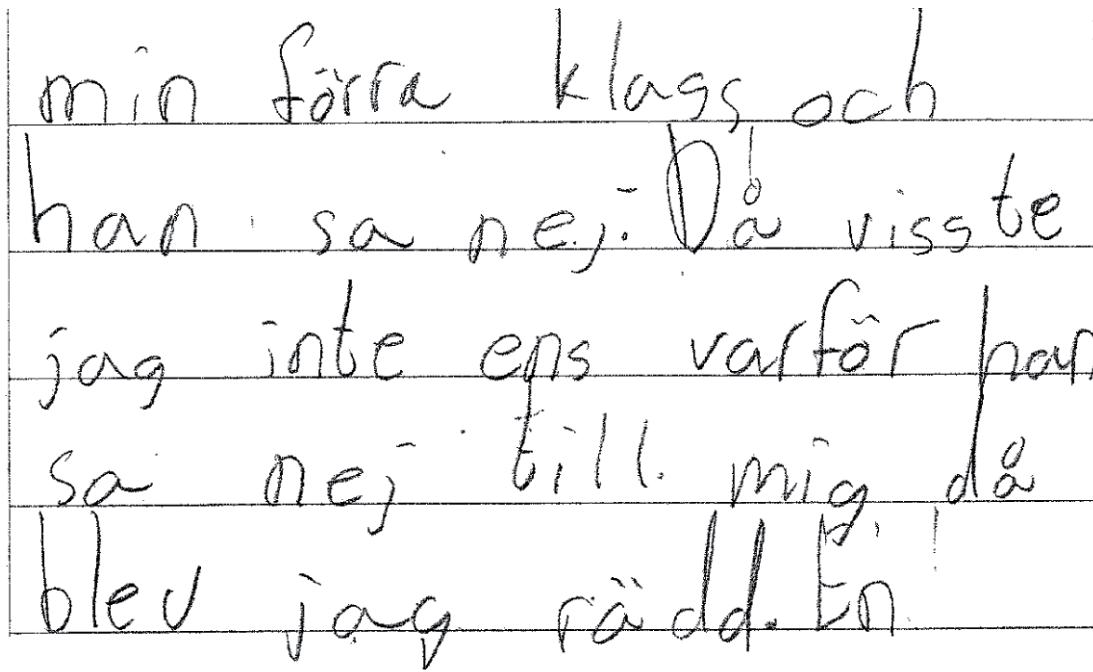 min förra klass och
han sa nej. Då visste
jag inte ens varför han
sa nej till mig då
blev jag rädd. En